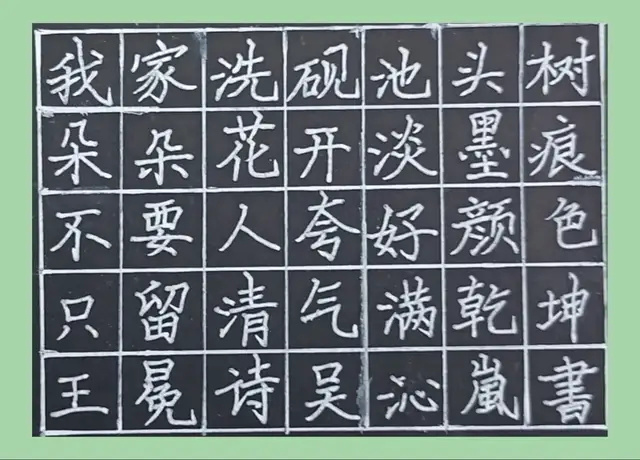 我家洗砚池头树
朵朵花开淡墨痕
不要人夸好颜色
只留清气满乾坤
王冕诗吴沁嵐書